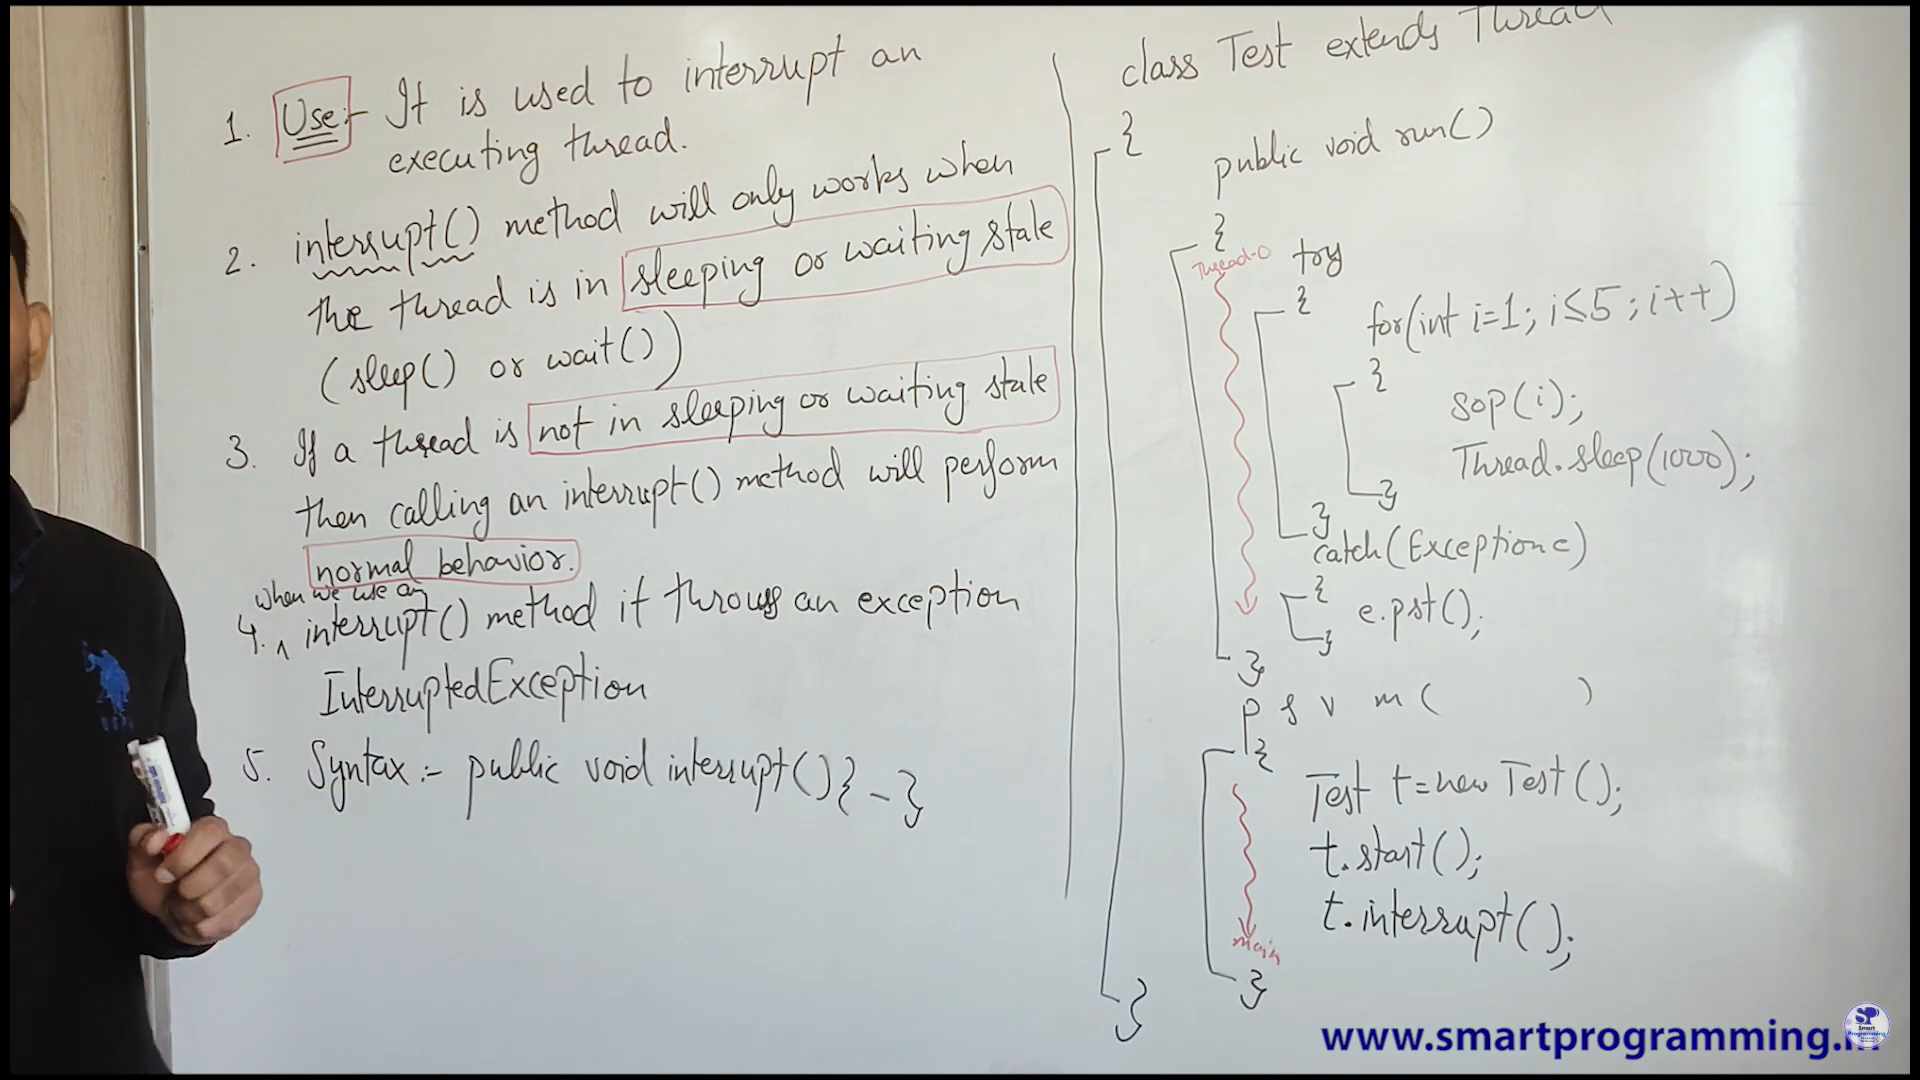 1. Use:- It is used to interrupt an
executing thread.
2. interrupt() method will only works when
the thread is in sleeping or waiting state
(sleep() or wait())
3. If a thread is not in sleeping or waiting state
then calling an interrupt() method will perform
normal behavior.
when we use an
4. ^ interrupt() method it throws an exception
InterruptedException
5. Syntax:- public void interrupt(){ - }
class Test extends Thread
{
public void run()
{
Thread-0
try
{
for(int i=1; i≤5; i++)
{
sop(i);
Thread.sleep(1000);
}
}
catch(Exception e)
{
e.pst();
}
}
p s v m ( )
{
Test t=new Test();
t.start();
t.interrupt();
main
}
}
www.smartprogramming.i
SP
Smart
Programming